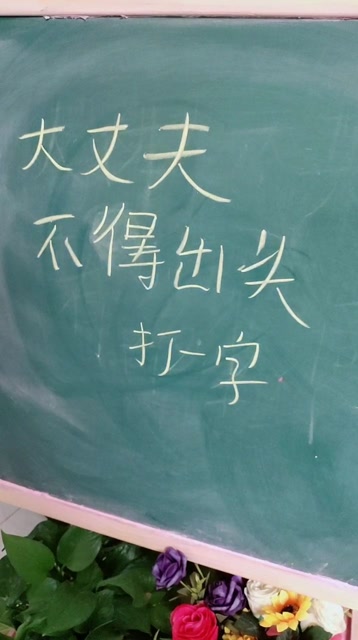 大丈夫
不得出头
打一字